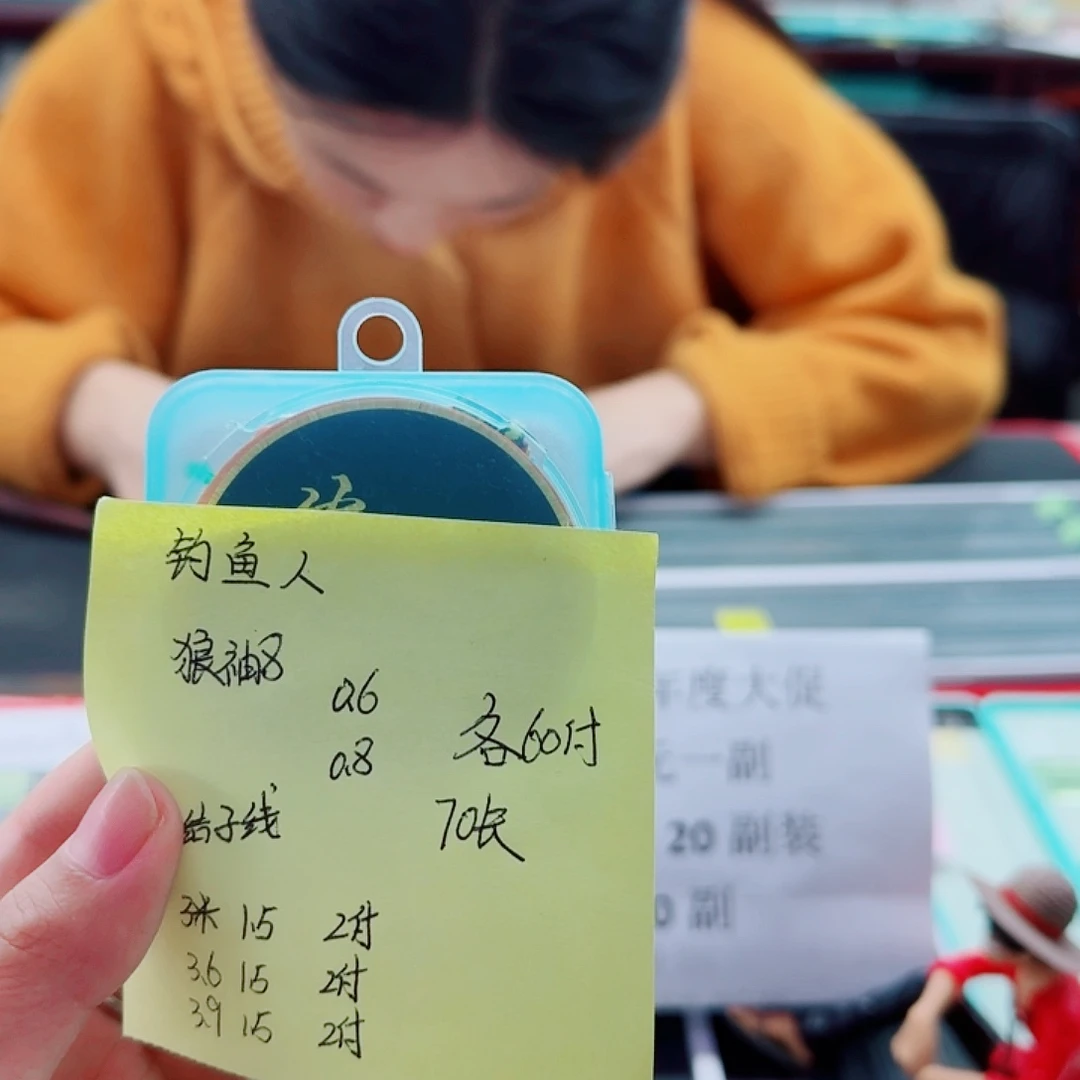 钓鱼人
狼袖8
0.6
0.8
各60付
结子线
70长
3米 1.5 2付
3.6 1.5 2付
3.9 1.5 2付
年度大促
元一副
20副装
0副